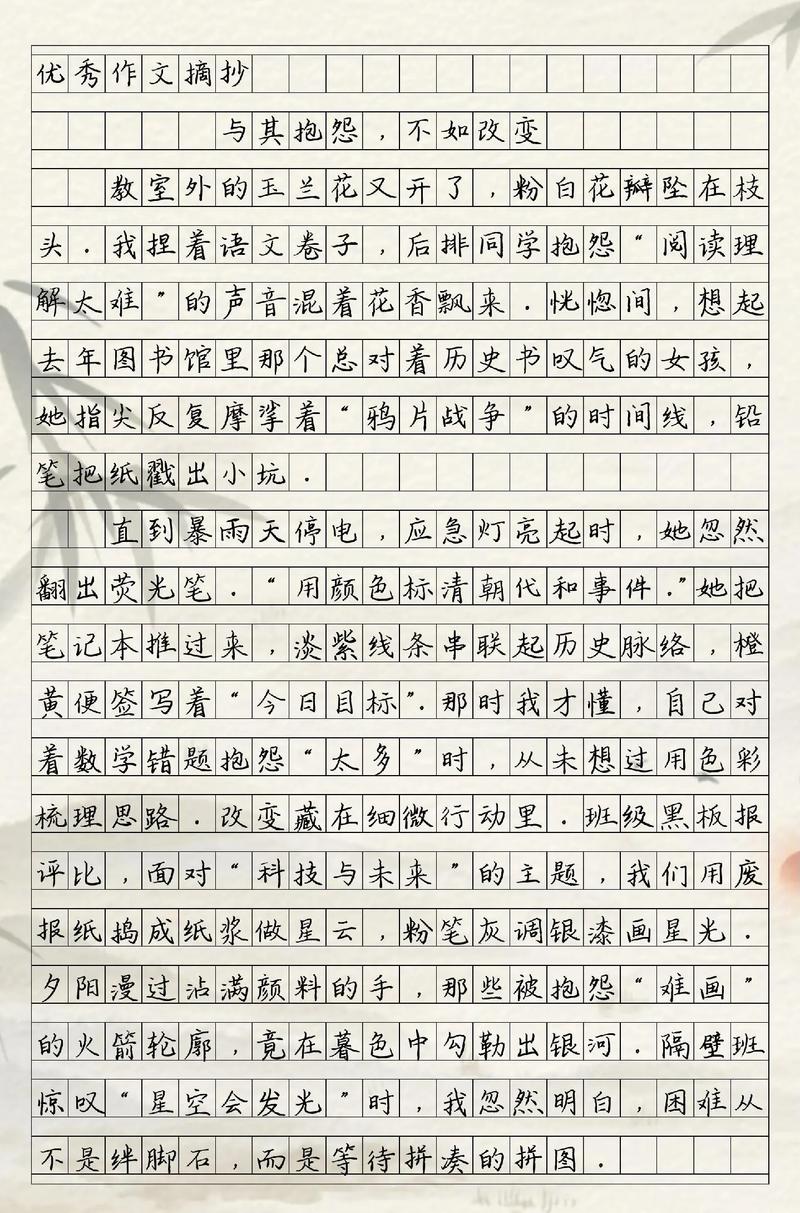 优秀作文摘抄
与其抱怨，不如改变
教室外的玉兰花又开了，粉白花瓣坠在枝
头．我捏着语文卷子，后排同学抱怨“阅读理
解太难”的声音混着花香飘来．恍惚间，想起
去年图书馆里那个总对着历史书叹气的女孩，
她指尖反复摩挲着“鸦片战争”的时间线，铅
笔把纸戳出小坑．
直到暴雨天停电，应急灯亮起时，她忽然
翻出荧光笔．“用颜色标清朝代和事件．”她把
笔记本推过来，淡紫线条串联起历史脉络，橙
黄便签写着“今日目标”．那时我才懂，自己对
着数学错题抱怨“太多”时，从未想过用色彩
梳理思路．改变藏在细微行动里．班级黑板报
评比，面对“科技与未来”的主题，我们用废
报纸捣成纸浆做星云，粉笔灰调银漆画星光．
夕阳漫过沾满颜料的手，那些被抱怨“难画”
的火箭轮廓，竟在暮色中勾勒出银河．隔壁班
惊叹“星空会发光”时，我忽然明白，困难从
不是绊脚石，而是等待拼凑的拼图．